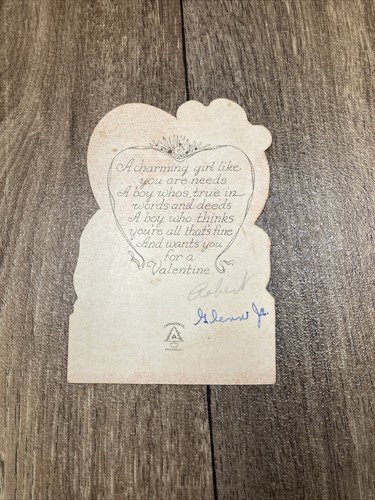 A charming girl like
you are needs
A boy whos true in
words and deeds
A boy who thinks
you're all that's fine
And wants you
for a
Valentine.
Robert
Glenn Jr.
A